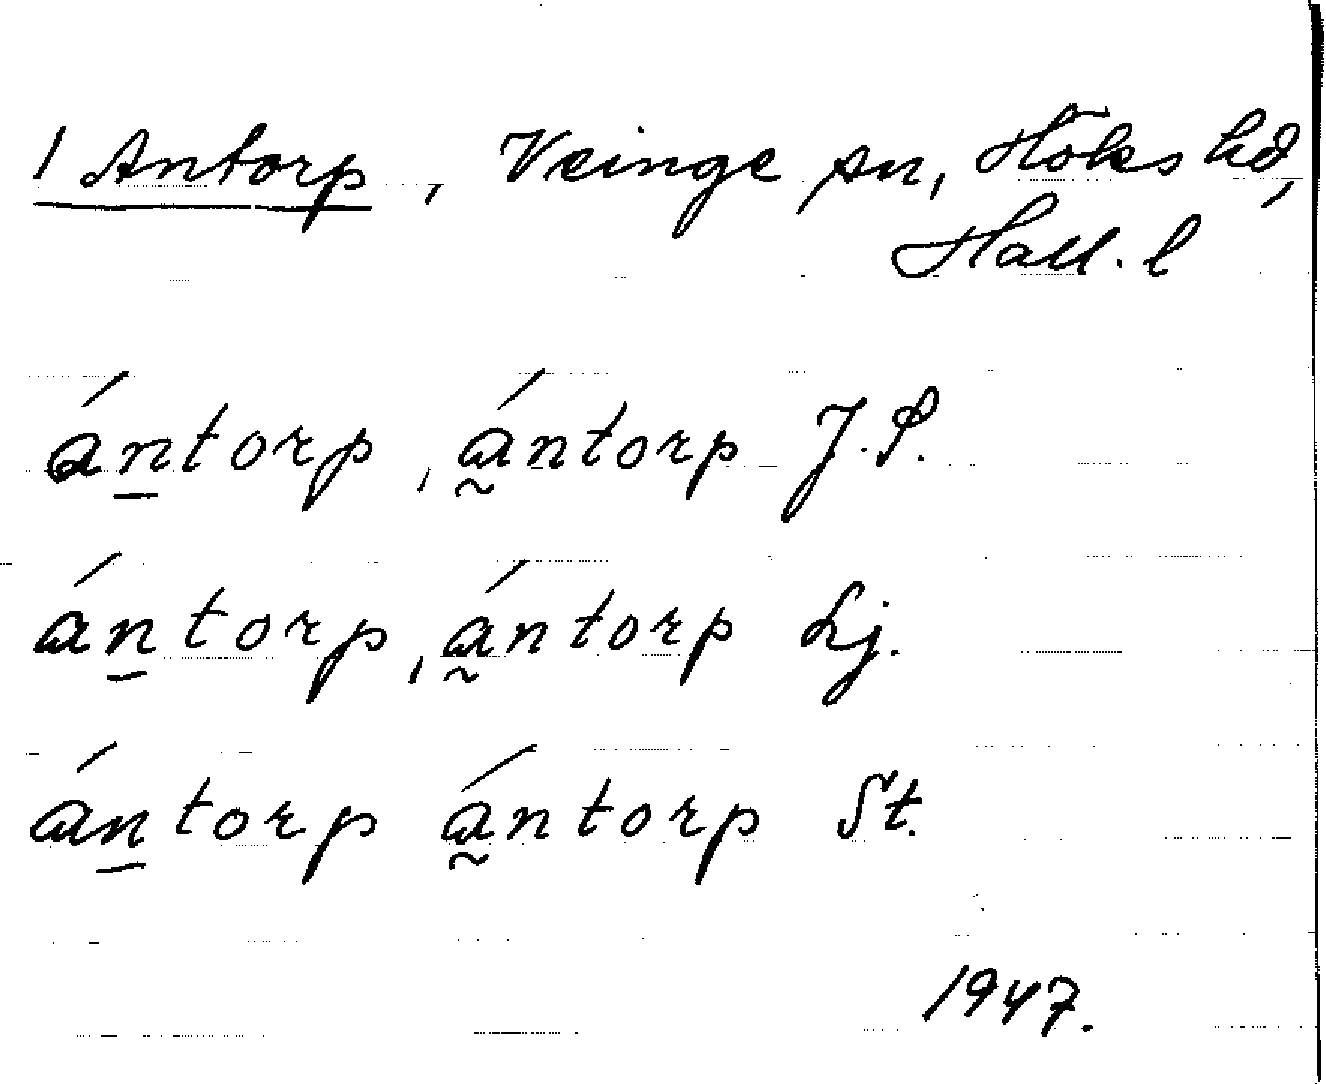 1 Antorp, Veinge sn, Höks hd,
Hall. l
án̲torp, á̰ntorp J.P.
án̲torp, á̰ntorp Lj.
án̲torp á̰ntorp St.
1947.